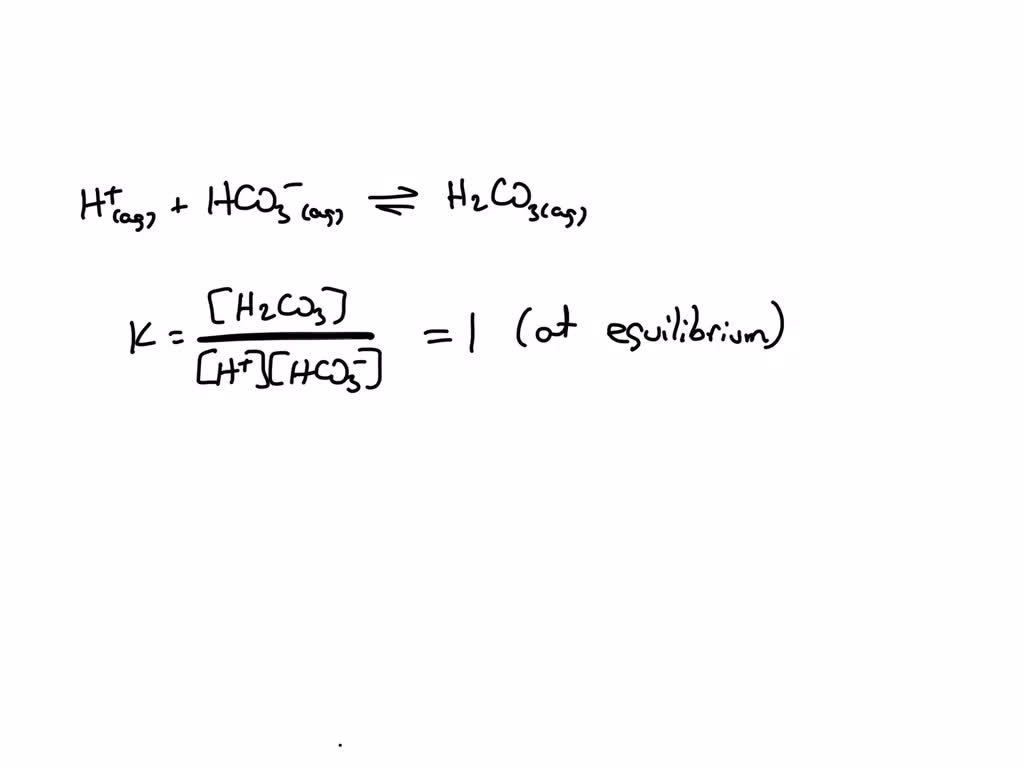 H⁺(aq) + HCO₃⁻(aq) ⇌ H₂CO₃(aq)
K = [H₂CO₃] / [H⁺][HCO₃⁻] = 1 (at equilibrium)